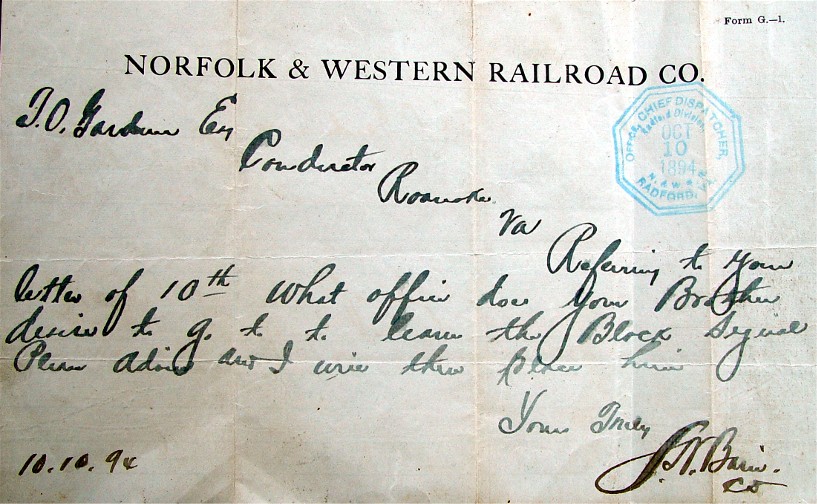 Form G.—1.
NORFOLK & WESTERN RAILROAD CO.
OFFICE CHIEF DISPATCHER,
Radford Division,
OCT
10
1894
N. & W.
RADFORD,
T.O. Gardner Esq
Conductor
Roanoke
Va
Referring to your
letter of 10th What office does your Brother
desire to go to to learn the Block Signal
Please advise and I will then place him
Yours Truly
10.10.94